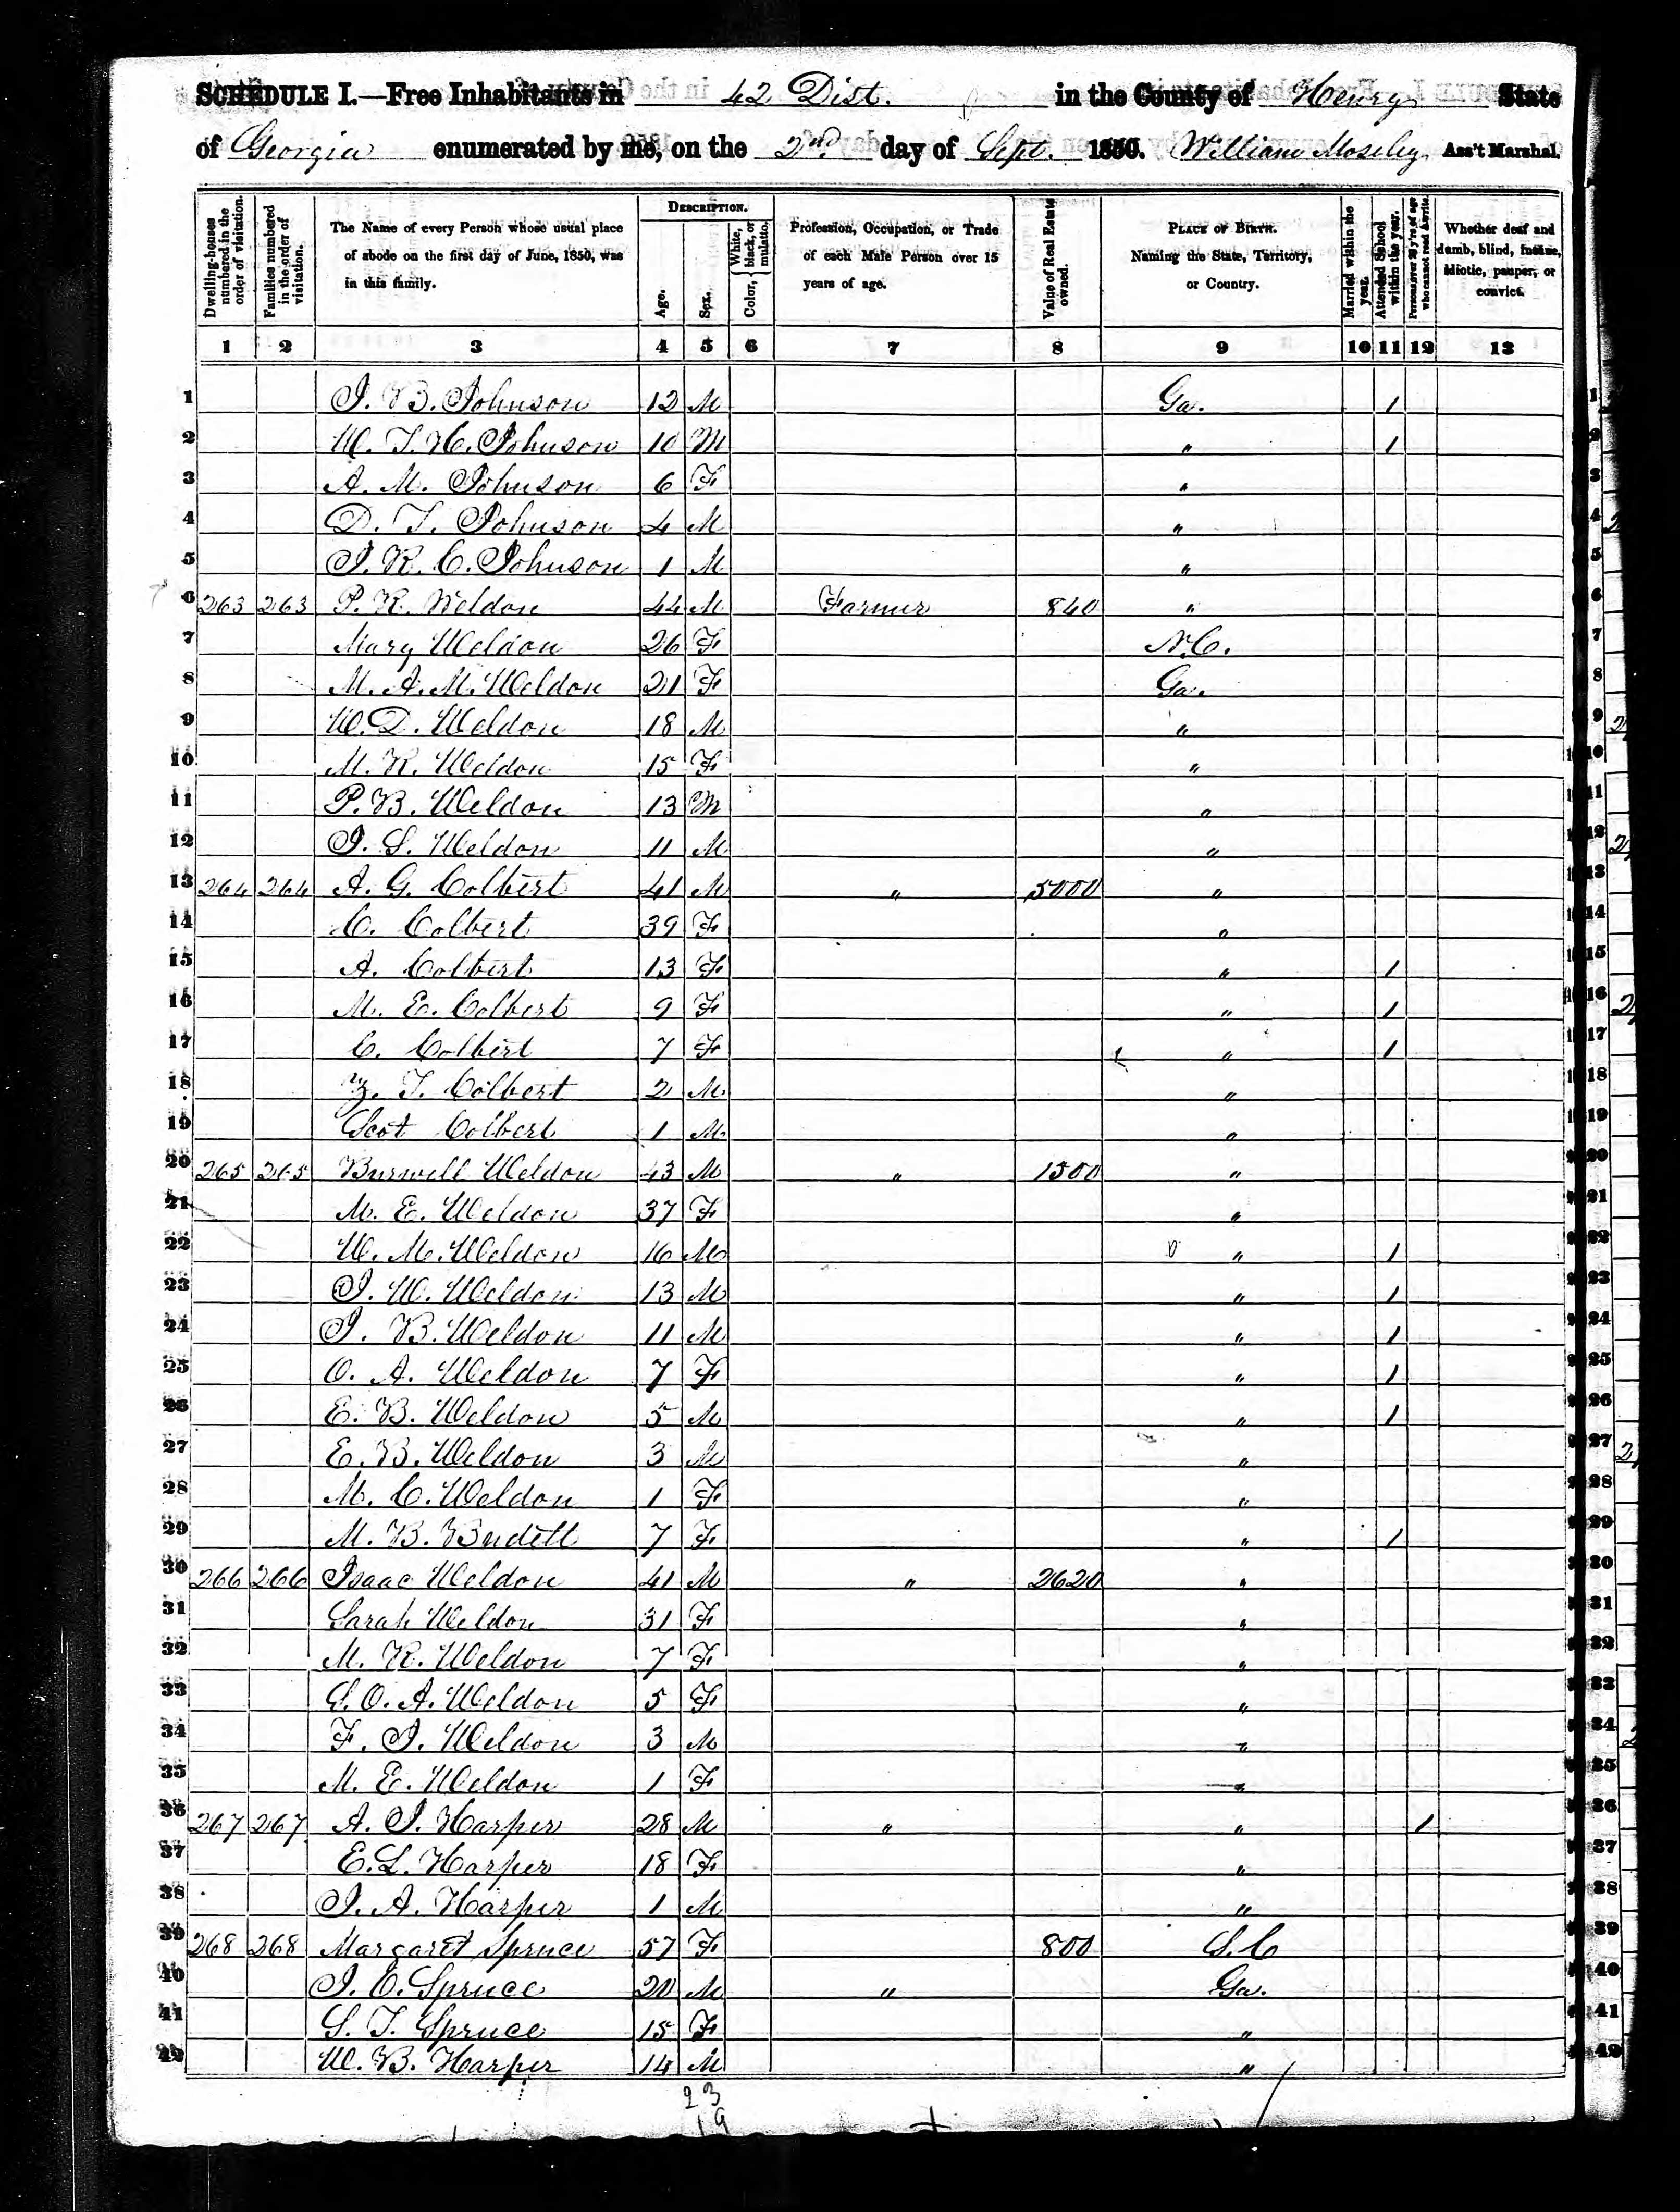 SCHEDULE I.—Free Inhabitants in 42 Dist. in the County of Henry State
of Georgia enumerated by me, on the 2nd day of Sept. 1850. William Moseley Ass't Marshal.
Dwelling-houses numbered in the order of visitation.
Families numbered in the order of visitation.
The Name of every Person whose usual place of abode on the first day of June, 1850, was in this family.
Description.
Age.
Sex.
Color, { White, black, or mulatto.
Profession, Occupation, or Trade of each Male Person over 15 years of age.
Value of Real Estate owned.
Place of Birth. Naming the State, Territory, or Country.
Married within the year.
Attended School within the year.
Persons over 20 y'rs of age who cannot read & write.
Whether deaf and dumb, blind, insane, idiotic, pauper, or convict.
1 2 3 4 5 6 7 8 9 10 11 12 13
1 J. B. Johnson 12 M Ga. 1 1
2 W. T. H. Johnson 10 M " 1 2
3 A. M. Johnson 6 F " 3
4 D. T. Johnson 4 M " 4
5 J. R. C. Johnson 1 M " 5
6 263 263 P. R. Weldon 44 M Farmer 840 " 6
7 Mary Weldon 26 F N.C. 7
8 M. A. M. Weldon 21 F Ga. 8
9 W. D. Weldon 18 M " 9
10 M. R. Weldon 15 F " 10
11 P. B. Weldon 13 M " 11
12 J. S. Weldon 11 M " 12
13 264 264 A. G. Colbert 41 M " 5000 " 13
14 C. Colbert 39 F " 14
15 A. Colbert 13 F " 1 15
16 M. E. Colbert 9 F " 1 16
17 C. Colbert 7 F " 1 17
18 Z. T. Colbert 2 M " 18
19 Scot Colbert 1 M " 19
20 265 265 Burwell Weldon 43 M " 1500 " 20
21 M. E. Weldon 37 F " 21
22 W. M. Weldon 16 M " 1 22
23 J. W. Weldon 13 M " 1 23
24 J. B. Weldon 11 M " 1 24
25 O. A. Weldon 7 F " 1 25
26 E. B. Weldon 5 M " 1 26
27 E. B. Weldon 3 M " 27
28 M. C. Weldon 1 F " 28
29 M. B. 7 F " 1 29
30 266 266 Isaac Weldon 41 M " 2620 " 30
31 Sarah Weldon 31 F " 31
32 M. R. Weldon 7 F " 32
33 S. O. A. Weldon 5 F " 33
34 F. J. Weldon 3 M " 34
35 M. E. Weldon 1 F " 35
36 267 267 A. J. Harper 28 M " " 1 36
37 E. L. Harper 18 F " 37
38 J. A. Harper 1 M " 38
39 268 268 Margaret Spruce 57 F 800 S.C 39
40 J. O. Spruce 20 M " Ga. 40
41 S. T. Spruce 15 F " 41
42 W. B. Harper 14 M " 42
23
19